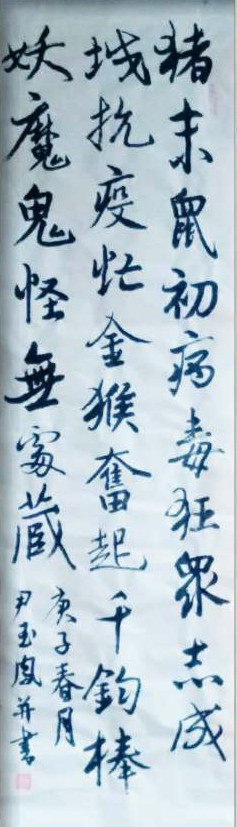 猪末鼠初病毒狂眾志成
城抗疫忙金猴奮起千鈞棒
妖魔鬼怪無處藏
庚子春月
尹玉鳳并書